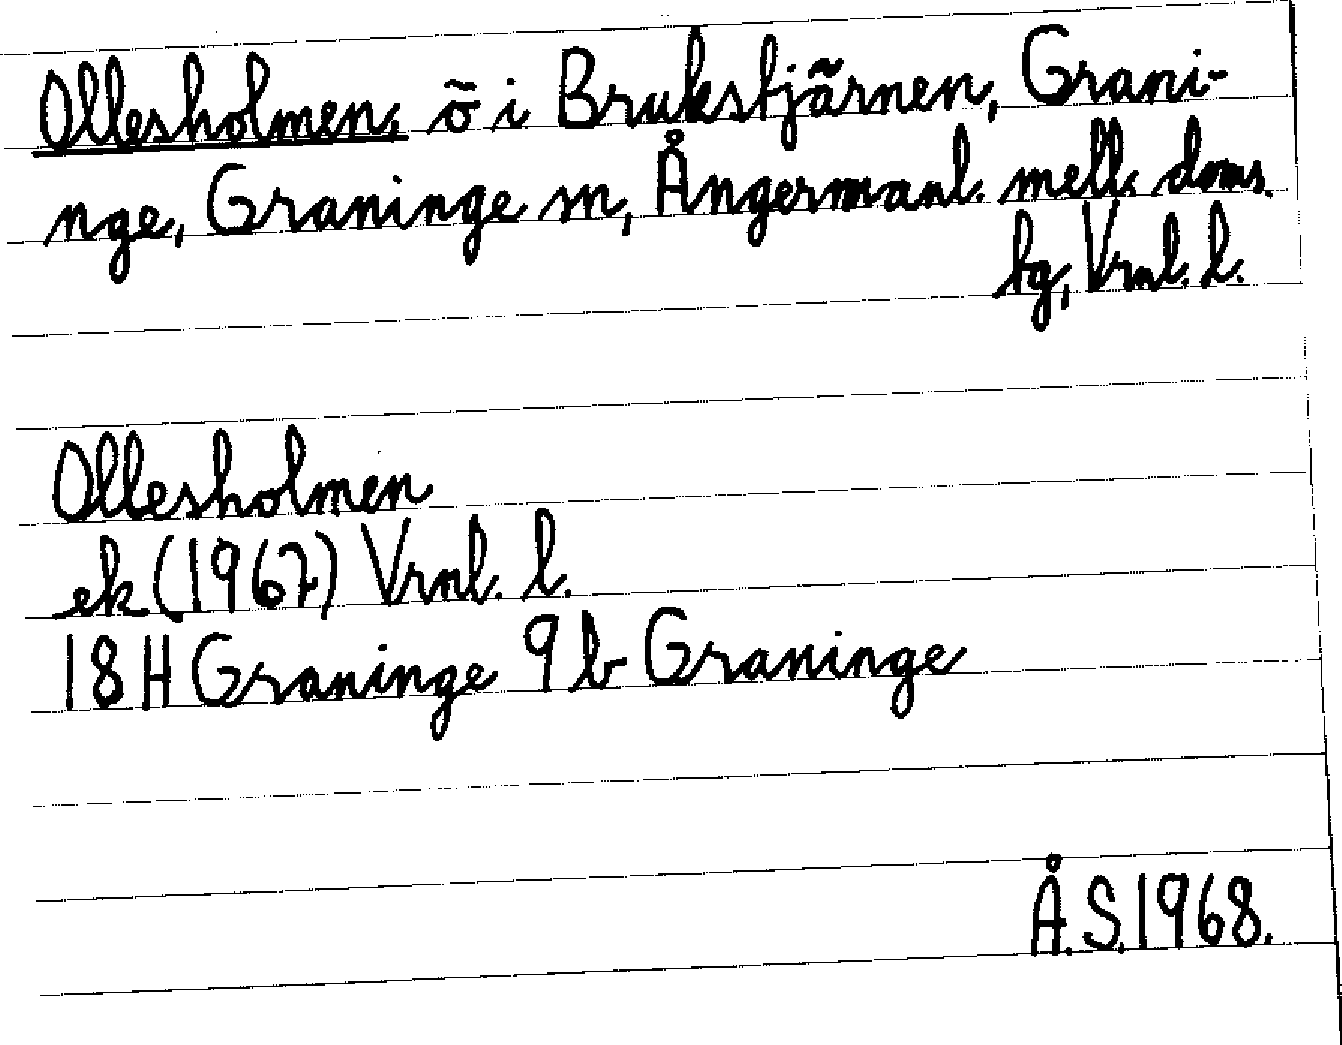 Ollesholmen, ö i Brukstjärnen, Grani-
nge, Graninge sn, Ångermanl. mell. doms.
tg, Vrnl. l.
Ollesholmen
ek (1967) Vrnl. l.
18H Graninge 9b Graninge
Å.S. 1968.